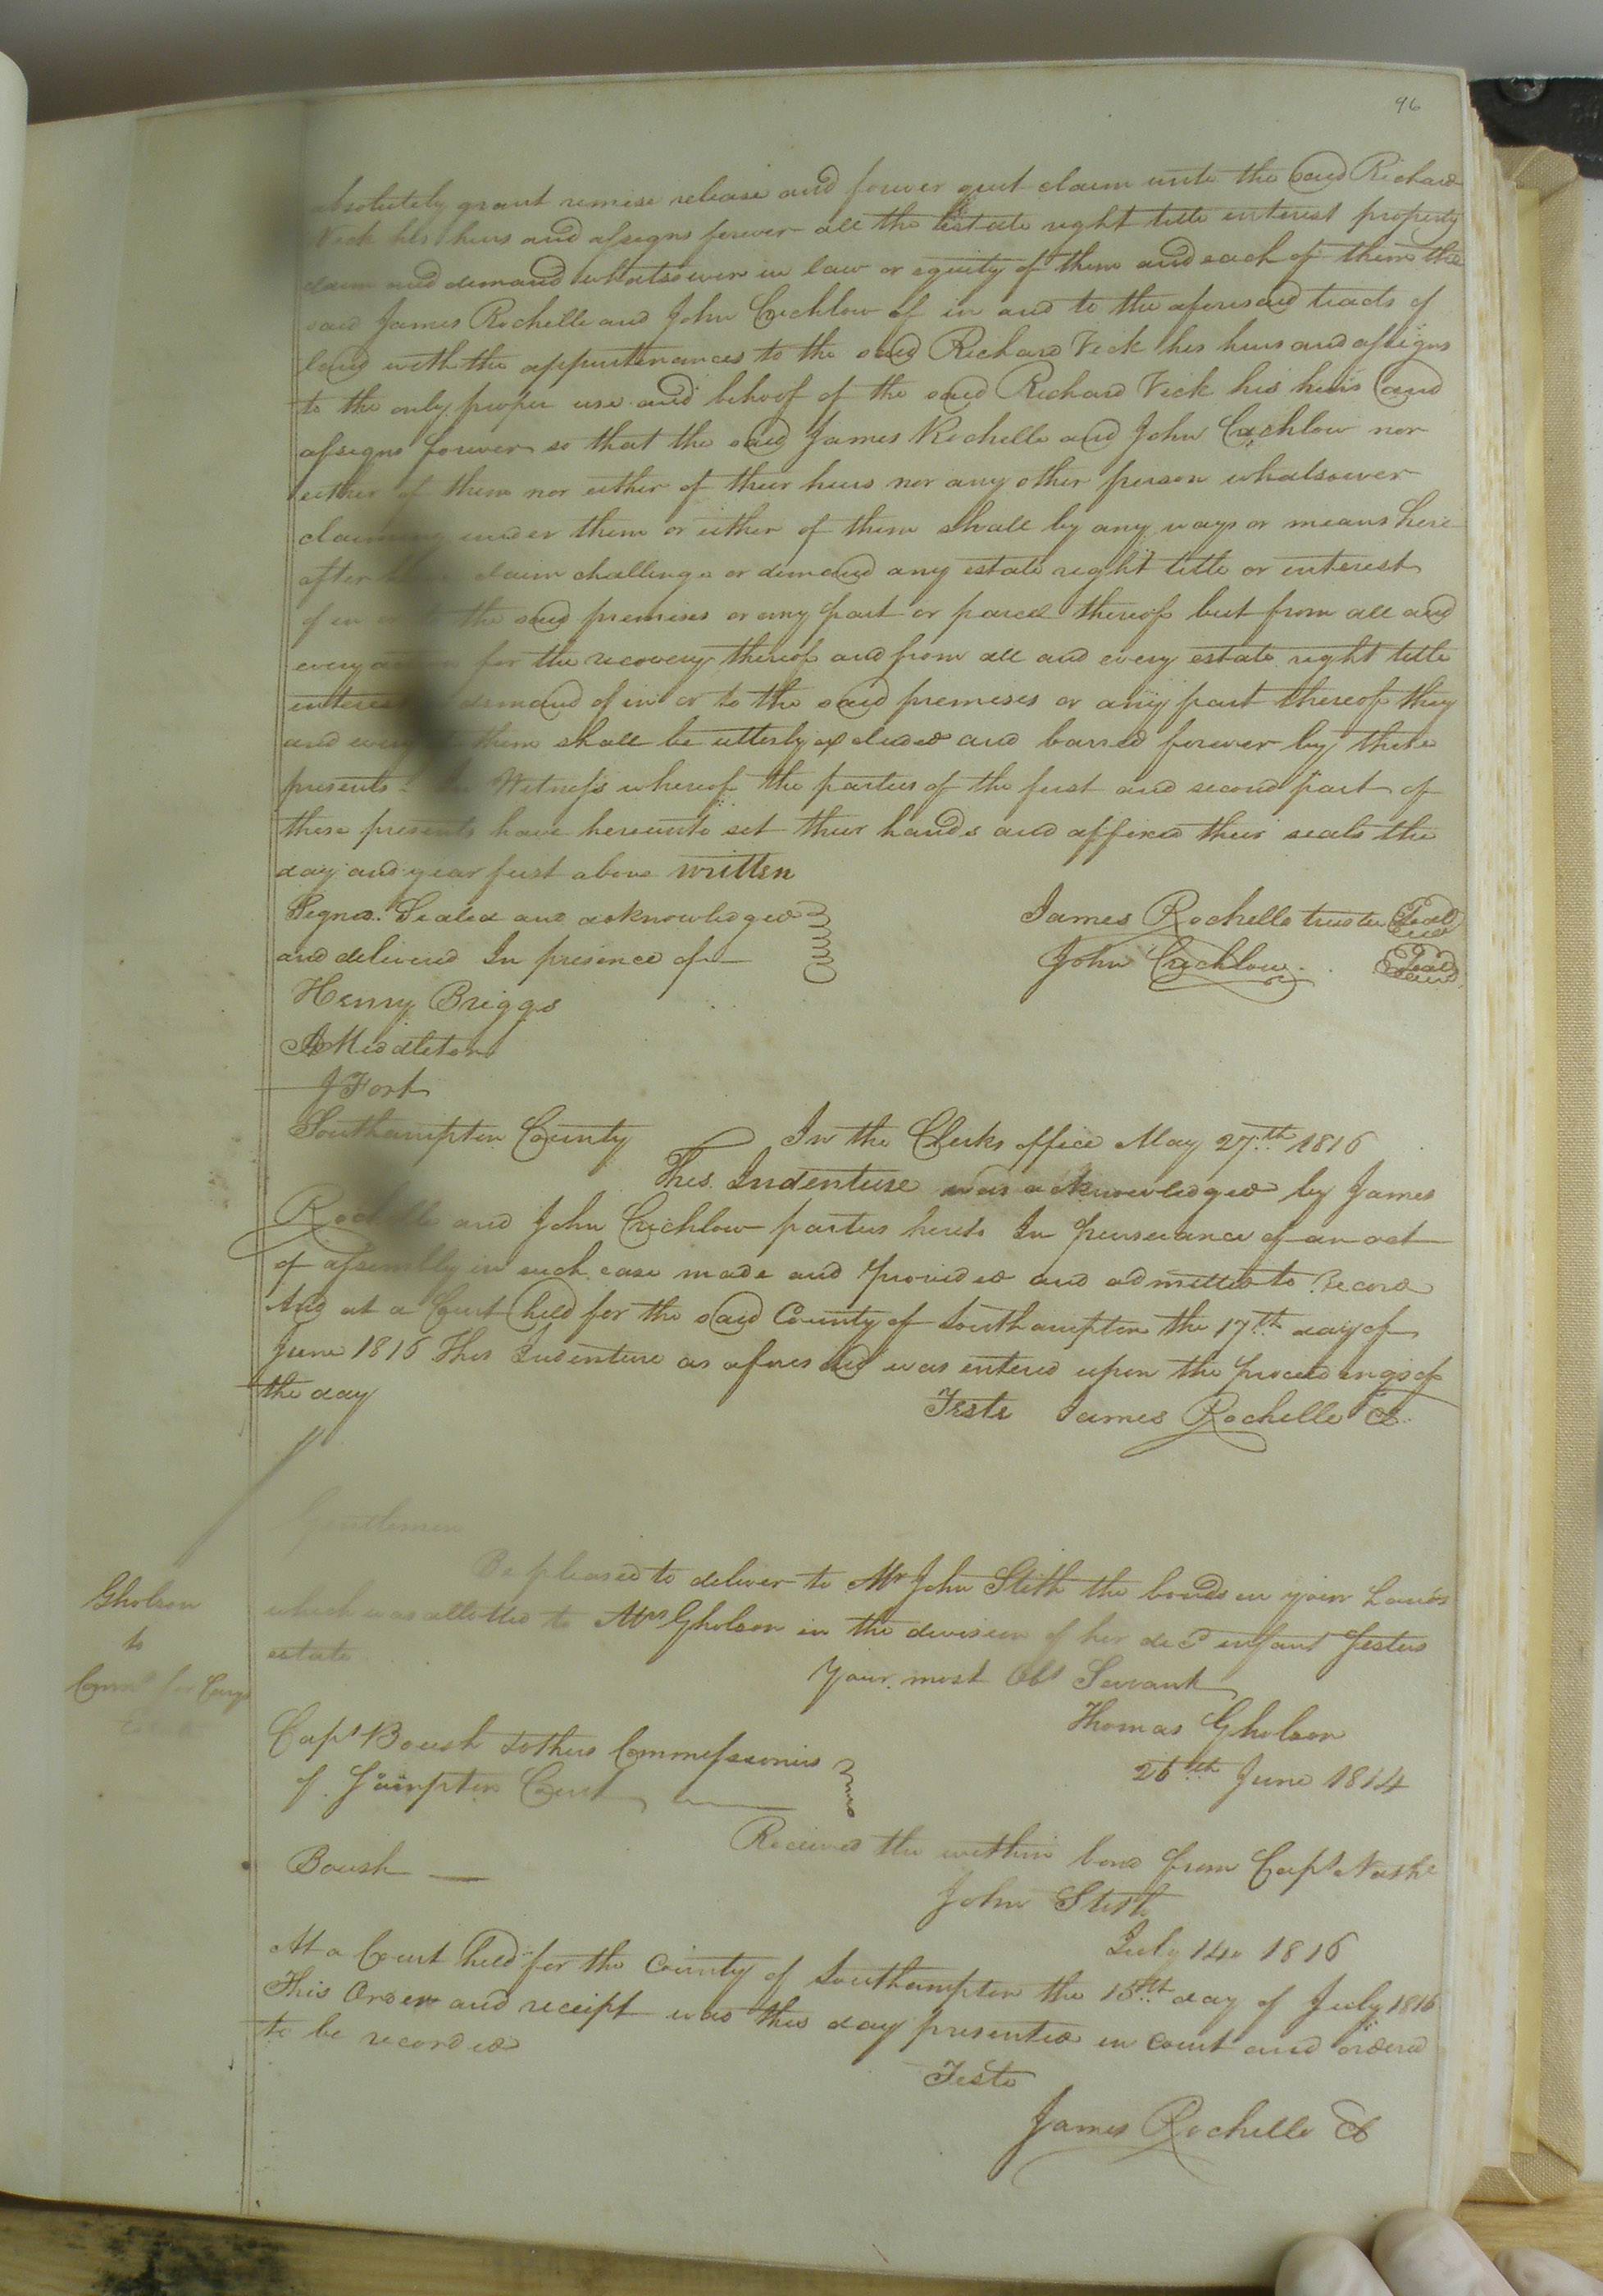 96
absolutely grant remise release and forever quit claim unto the said Richard
Vick his heirs and assigns forever all the Estate right title interest property
claim and demand whatsoever in law or equity of them and each of them the
said James Rochelle and John Crichlow of in and to the aforesaid tracts of
land with the appurtenances to the said Richard Vick his heirs and assigns
to the only proper use and behoof of the said Richard Vick his heirs and
assigns forever so that the said James Rochelle and John Crichlow nor
either of them nor either of their heirs nor any other person whatsoever
claiming under them or either of them shall by any ways or means here
after claim challenge or demand any estate right title or interest
of in or to the said premises or any part or parcel thereof but from all and
every action for the recovery thereof and from all and every estate right title
interest demand of in or to the said premises or any part thereof they
and every of them shall be utterly excluded and barred forever by these
presents. In Witness whereof the parties of the first and second part of
these presents have hereunto set their hands and affixed their seals the
day and year first above written
Signed. Sealed and acknowledged
and delivered In presence of
James Rochelle trustee Seal
John Crichlow Seal
Henry Briggs
A Middleton
J Fort
Southampton County In the Clerks office May 27th 1816
This Indenture was acknowledged by James
Rochelle and John Crichlow parties hereto In pursuance of an act
of assembly in such case made and provided and admitted to Record
And at a Court held for the said County of Southampton the 17th day of
June 1816 This Indenture as aforesaid was entered upon the proceedings of
the day
Teste James Rochelle Ck
Gentlemen
Be pleased to deliver to Mr John Stith the bonds in your hands
which was allotted to Mrs Gholson in the division of her decd infant Jesters
estate
Your most Obt Servant
Thomas Gholson
26th June 1814
Gholson
to
Capt Boush & others Commissioners
of Sampton Court
Received the within bond from Capt Nashl
Boush
John Stith
July 14 1816
At a Court held for the County of Southampton the 15th day of July 1816
This Order and receipt was this day presented in court and ordered
to be recorded
Teste
James Rochelle Ck